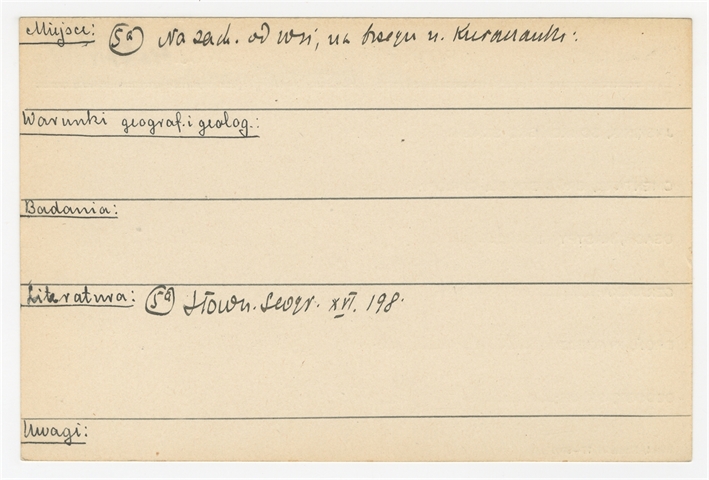 Miejsce: 5a Na zach. od wsi, na brzegu n.
Warunki geograf. i geolog.:
Badania:
Literatura: 5a Słown. Geogr. XVI. 198.
Uwagi: